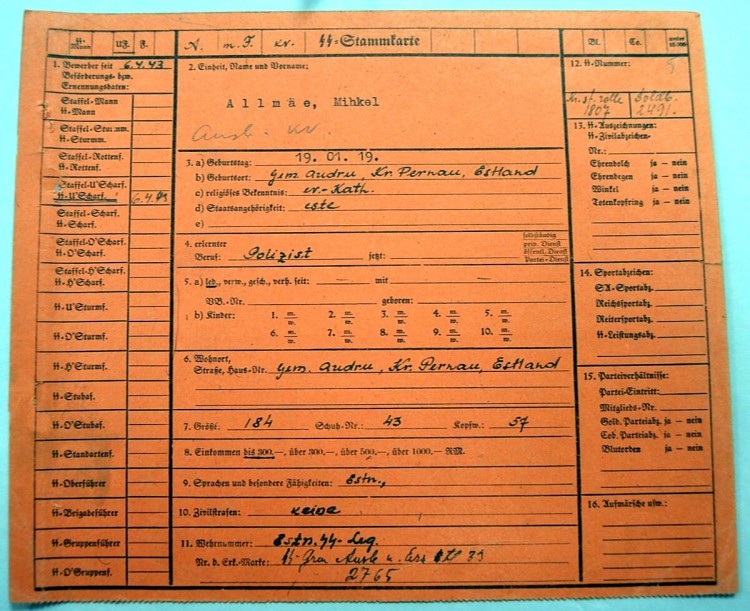 ϟϟ-Mann
UF. F.
A. m.F. kv.
ϟϟ-Stammkarte
Bl. Co. unter
1. Bewerber seit 6.4.43
Beförderungs- bzw.
Ernennungsdaten:
Staffel-Mann
ϟϟ-Mann
Staffel-Sturmm.
ϟϟ-Sturmm.
Staffel-Rottenf.
ϟϟ-Rottenf.
Staffel-U'Scharf.
ϟϟ-U'Scharf. 6.4.43
Staffel-Scharf.
ϟϟ-Scharf.
Staffel-O'Scharf.
ϟϟ-O'Scharf.
Staffel-H'Scharf.
ϟϟ-H'Scharf.
ϟϟ-U'Sturmf.
ϟϟ-O'Sturmf.
ϟϟ-H'Sturmf.
ϟϟ-Stubaf.
ϟϟ-O'Stubaf.
ϟϟ-Standartenf.
ϟϟ-Oberführer
ϟϟ-Brigadeführer
ϟϟ-Gruppenführer
ϟϟ-O'Gruppenf.
2. Einheit, Name und Vorname:
Allmäe, Mihkel
Ausb. kv.
3. a) Geburtstag: 19. 01. 19.
b) Geburtsort: Gem. Audru, Kr. Pernau, Estland
c) religiöses Bekenntnis: ev.-Kath.
d) Staatsangehörigkeit: este
e)
4. erlernter
Beruf: Polizist jetzt:
selbständig
priv. Dienst
öffentl. Dienst
Partei-Dienst
5. a) led., verw., gesch., verh. seit: — mit —
VB.-Nr. geboren:
b) Kinder: 1. m/w. 2. m/w. 3. m/w. 4. m/w. 5. m/w.
6. m/w. 7. m/w. 8. m/w. 9. m/w. 10. m/w.
6. Wohnort,
Straße, Haus-Nr. Gem. Audru, Kr. Pernau, Estland
7. Größe: 184 Schuh-Nr.: 43 Kopfw.: 57
8. Einkommen bis 300.—, über 300.—, über 500.—, über 1000.— RM.
9. Sprachen und besondere Fähigkeiten: Estn.,
10. Zivilstrafen: keine
11. Wehrnummer: Estn. ϟϟ-Leg.
Nr. d. Erk.-Marke: ϟϟ-Gren Ausb. u. Ers Btl 33
2765
12. ϟϟ-Nummer:
Kr. st. rolle
1807
Soldb.
2491.
13. ϟϟ-Auszeichnungen:
ϟϟ-Zivilabzeichen-
Nr.:
Ehrendolch ja — nein
Ehrendegen ja — nein
Winkel ja — nein
Totenkopfring ja — nein
14. Sportabzeichen:
SA-Sportabz.
Reichssportabz.
Reitersportabz.
ϟϟ-Leistungsabz.
15. Parteiverhältnisse:
Partei-Eintritt:
Mitglieds-Nr.
Gold. Parteiabz. ja — nein
Cob. Parteiabz. ja — nein
Blutorden ja — nein
16. Aufmärsche usw.: